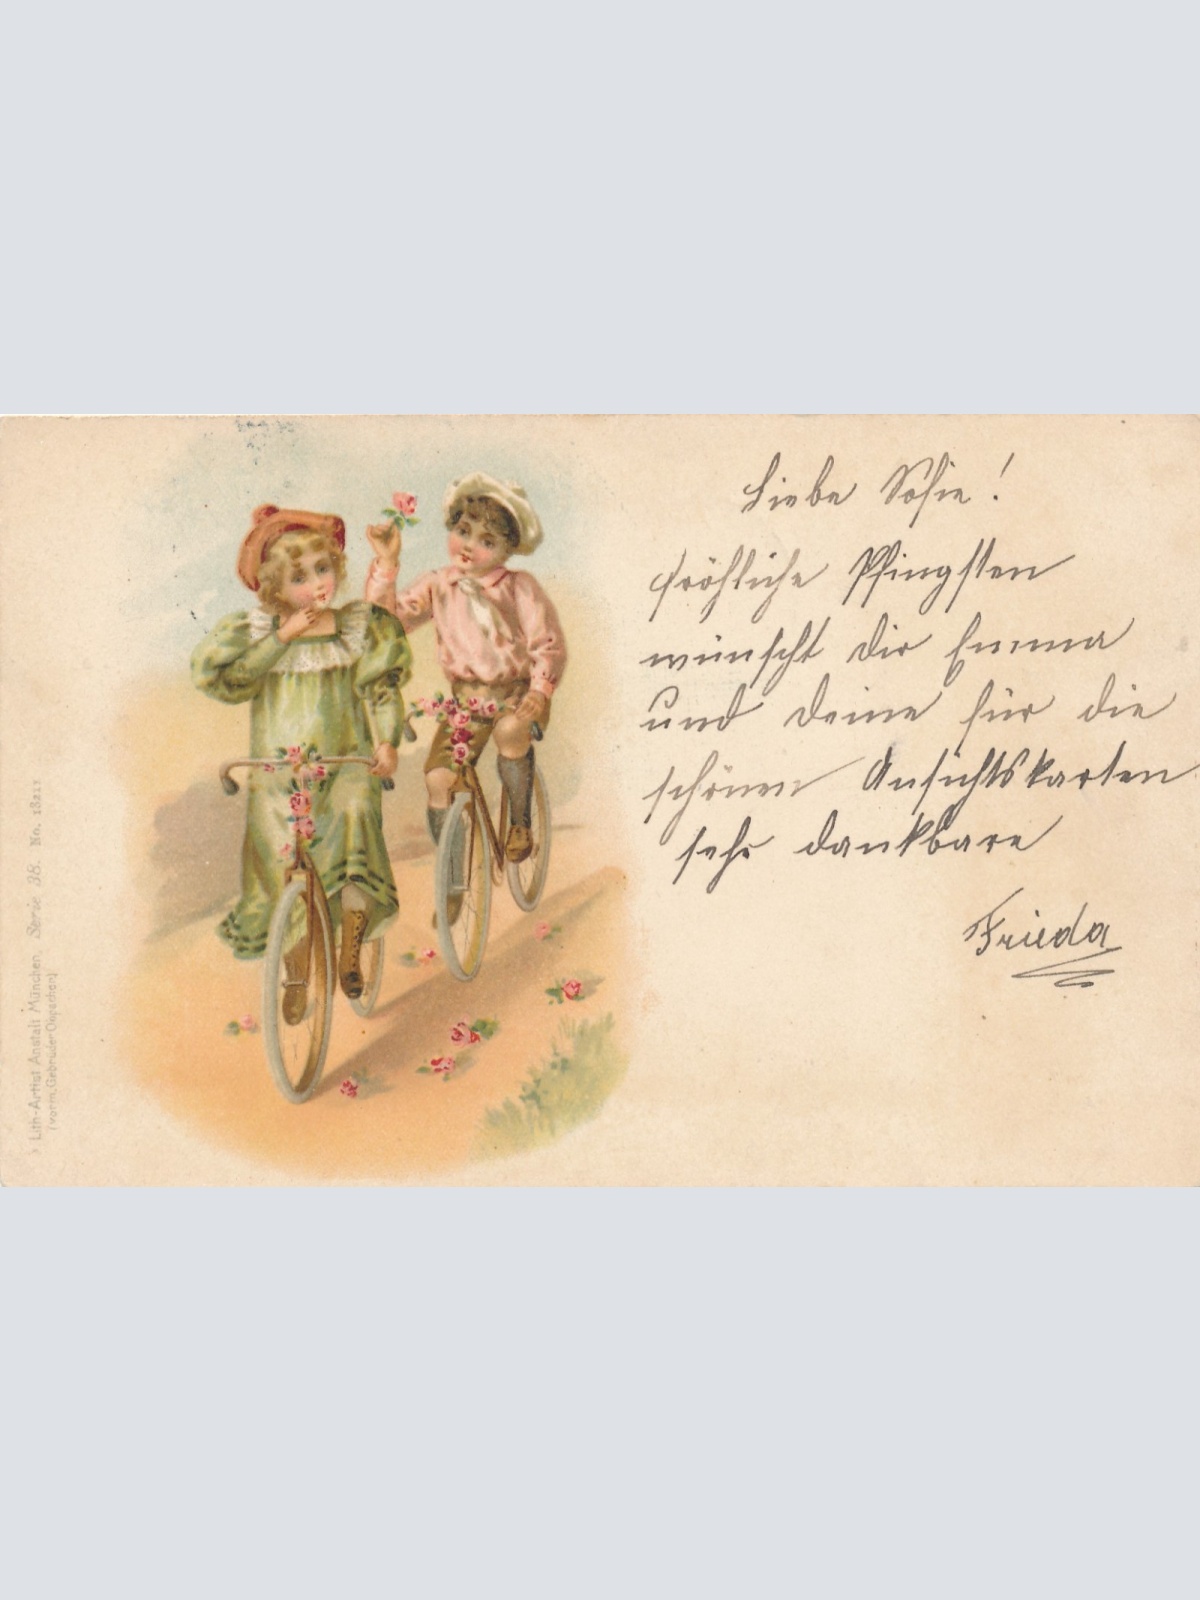 Liebe Sofie!
fröhliche Pfingsten
wünscht dir Emma
und deine für die
schönen Ansichtskarten
sehr dankbare
Frieda
Lith-Artist Anstalt München Serie 38. No. 18211
(vorm. Gebrüder Obpacher)